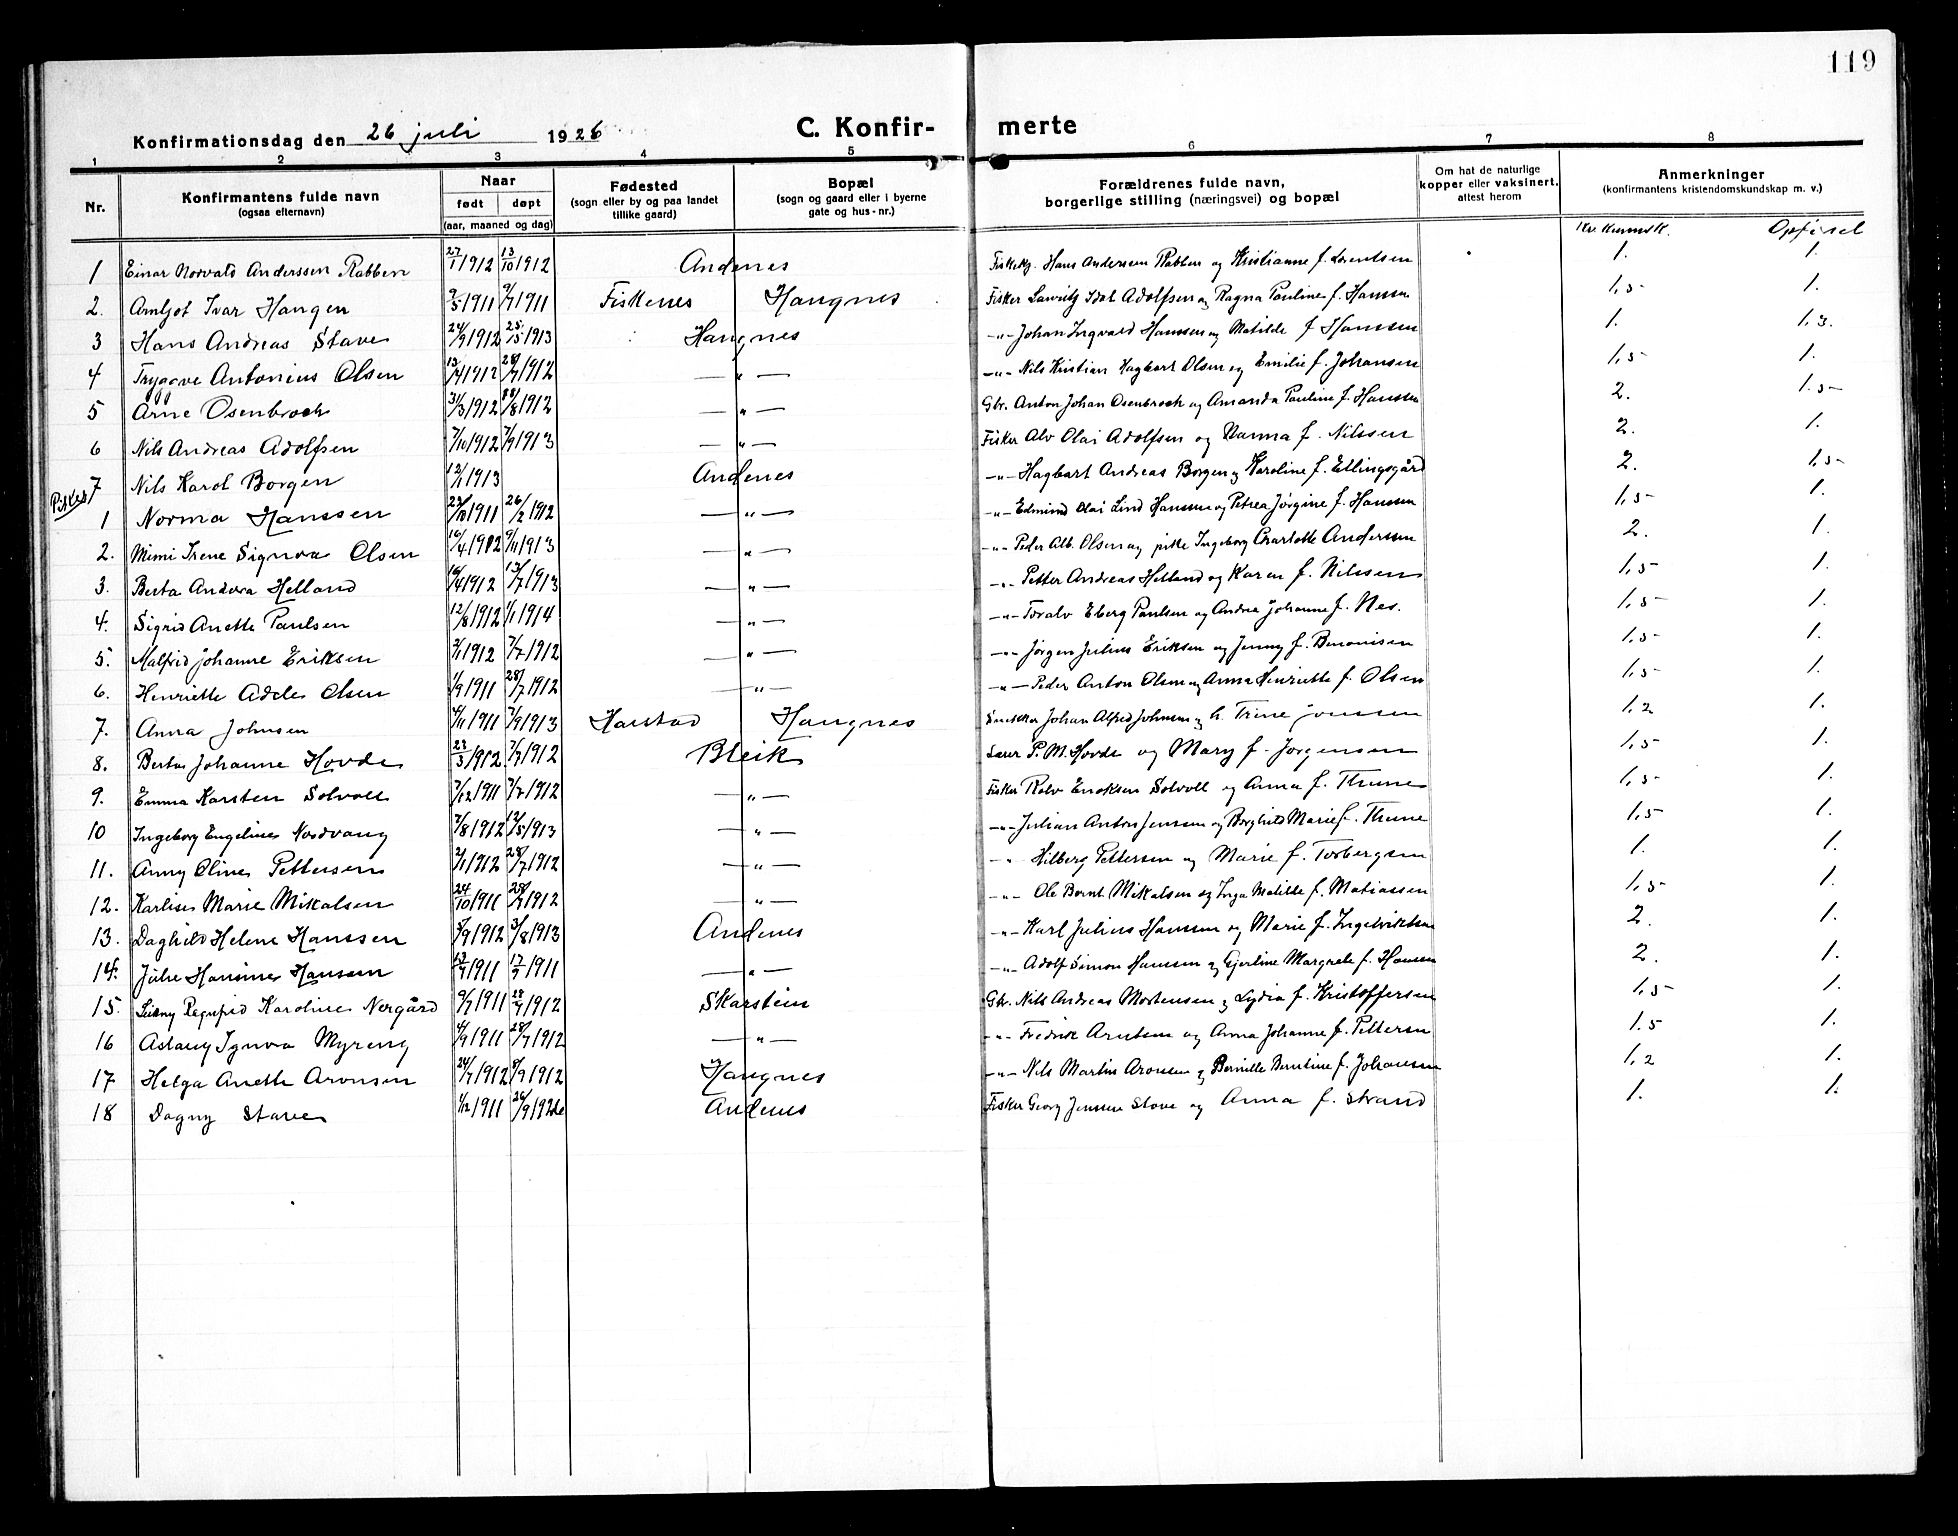 119
Konfirmationsdag den 26 juli 1926 C. Konfir- merte
1 2 3 4 5 6 7 8
Nr. Konfirmantens fulde navn (ogsaa efternavn) Naar født døpt (aar, maaned og dag) Fødested (sogn eller by og paa landet tillike gaard) Bopæl (sogn og gaard eller i byerne gate og hus-nr.) Forældrenes fulde navn, borgerlige stilling (næringsvei) og bopæl Om hat de naturlige kopper eller vaksinert, attest herom Anmerkninger (konfirmantens kristendomskundskap m. v.)
Kr. kunnsk. Opførsel
1 Einar Norvald Anderssen Rabben 27/1 1912 13/10 1912 Andenes Hans Anderssen Rabben og Kristianne f. Lorentsen 1. 1.
2. Arnljot Ivar Haugen 9/5 1911 9/7 1911 Fiskenes Haugnes Fisker Adolfsen og Ragna Pauline f. Hanssen 1,5- 1.
3 Hans Andreas Stave 24/9 1912 25/5 1913 Haugnes -"- Johan Ingvald Hanssen og Matilde f Hanssen 1. 1,3.
4 Tryggve Antonius Olsen 13/4 1912 28/7 1912 —"— -"- Nils Kristian Hagbart Olsen og Emilie f. Johansen 1,5- 1.
5 Arne Osenbroch 31/3 1912 18/8 1912 —"— Gbr. Anton Johan Osenbroch og Amanda Pauline f. Hanssen 2. 1.5-
6 Nils Andreas Adolfsen 7/10 1912 7/9 1913 —"— Fisker Alv Olai Adolfsen og Narma f. Nilssen 2. 1.
7 Nils Karol Borgen 12/1 1913 Andenes -"- Hagbart Andreas Borgen og Karoline f. Ellingsgård 2. 1,5-
Piker
1 Norma Hanssen 23/10 1911 26/2 1912 —"— -"- Edmind Olai Lind Hanssen og Petrea Jørgine f. Hanssen 1,5- 1.
2. Mimi Irene Signora Olsen 16/4 1912 9/11 1913 —"— -"- Peder Alb. Olsen og pike Ingeborg Charlotte Anderssen 2. 1.
3. Berta Andora Helland 16/4 1912 13/7 1913 —"— -"- Petter Andreas Helland og Karen f. Nilssen 1,5- 1.
4. Sigrid Anette Paulsen 12/8 1912 1/1 1914 —"— -"- Toralv Eberg Paulsen og Andrea Johanne f. Nes. 1,5- 1.
5. Malfrid Johanne Eriksen 2/1 1912 7/7 1912 —"— -"- Jørgen Julius Eriksen og Jenny f. Benonisen 1.5- 1.
6. Henriette Adele Olsen 1/9 1911 28/7 1912 —"— -"- Peder Anton Olsen og Anna Henriette f. Olsen 1.5- 1.
7. Anna Johnsen 4/11 1911 7/9 1913 Harstad Haugnes Snekker Johan Alfred Johnsen og h. Trine Jonssen 1,2 1.
8. Berta Johanne Hovde 23/3 1912 7/7 1912 Bleik Lærer P. M. Hovde og Mary f. Jørgensen 1.5- 1.
9. Emma Karsten Solvoll 7/12 1911 7/7 1912 —"— Fisker Rolv Enoksen Solvoll og Anna f. Thune 1,5- 1.
10 Ingeborg Engeline Nordvang 7/8 1912 12/5 1913 —"— -"- Julian Anton Jenssen og Borghild Marie f. Thune 1,5 1.
11. Anny Oline Pettersen 2/1 1912 28/7 1912 —"— -"- Hilberg Pettersen og Marie f. Torbergsen 1. 1.
12. Karlise Marie Mikalsen 24/10 1911 28/7 1912 —"— -"- Ole Bernt Mikalsen og Inga Matilde f. Matiassen 1,5- 1.
13. Daghild Helene Hanssen 7/9 1912 3/8 1913 Andenes -"- Karl Julius Hanssen og Marie f. Ingebriktsen 2. 1.
14. Julie Hansine Hansen 13/7 1911 17/9 1911 —"— -"- Adolf Simon Hanssen og Gjertine Margrete f. Hansen 2. 1.
15. Karoline Norgård 9/7 1911 28/7 1912 Skarstein Gbr. Nils Andreas Mortensen og Lydia f. Kristoffersen 1,5- 1.
16 Aslaug Ignora Myreng 4/9 1911 28/7 1912 —"— -"- Fredrik Arntsen og Anna Johanne f. Pettersen 1.5 1.
17 Helga Anette Aronsen 24/7 1912 8/9 1912 Haugnes -"- Nils Martin Aronsen og Bernille Berntine f. Johansen 1,2 1.
18 Dagny Stave 1/12 1911 26/9 Andenes Fisker Georg Jenssen Stave og Anna f. Strand 1. 1.